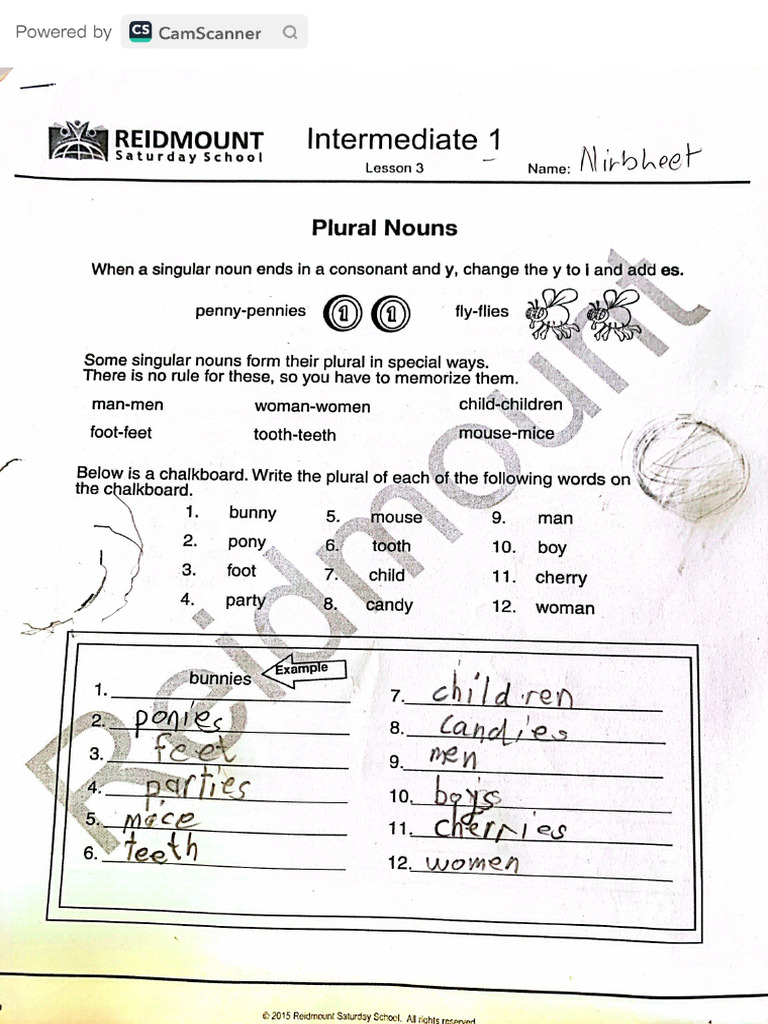 Powered by CS CamScanner
REIDMOUNT
Saturday School
Intermediate 1
Lesson 3
Name: Nirbheet
Plural Nouns
When a singular noun ends in a consonant and y, change the y to i and add es.
penny-pennies 1 1 fly-flies
Some singular nouns form their plural in special ways.
There is no rule for these, so you have to memorize them.
man-men woman-women child-children
foot-feet tooth-teeth mouse-mice
Below is a chalkboard. Write the plural of each of the following words on
the chalkboard.
1. bunny 5. mouse 9. man
2. pony 6. tooth 10. boy
3. foot 7. child 11. cherry
4. party 8. candy 12. woman
Example
1. bunnies
2. ponies
3. feet
4. parties
5. mice
6. teeth
7. children
8. candies
9. men
10. boys
11. cherries
12. women
Reidmount
© 2015 Reidmount Saturday School. All rights reserved